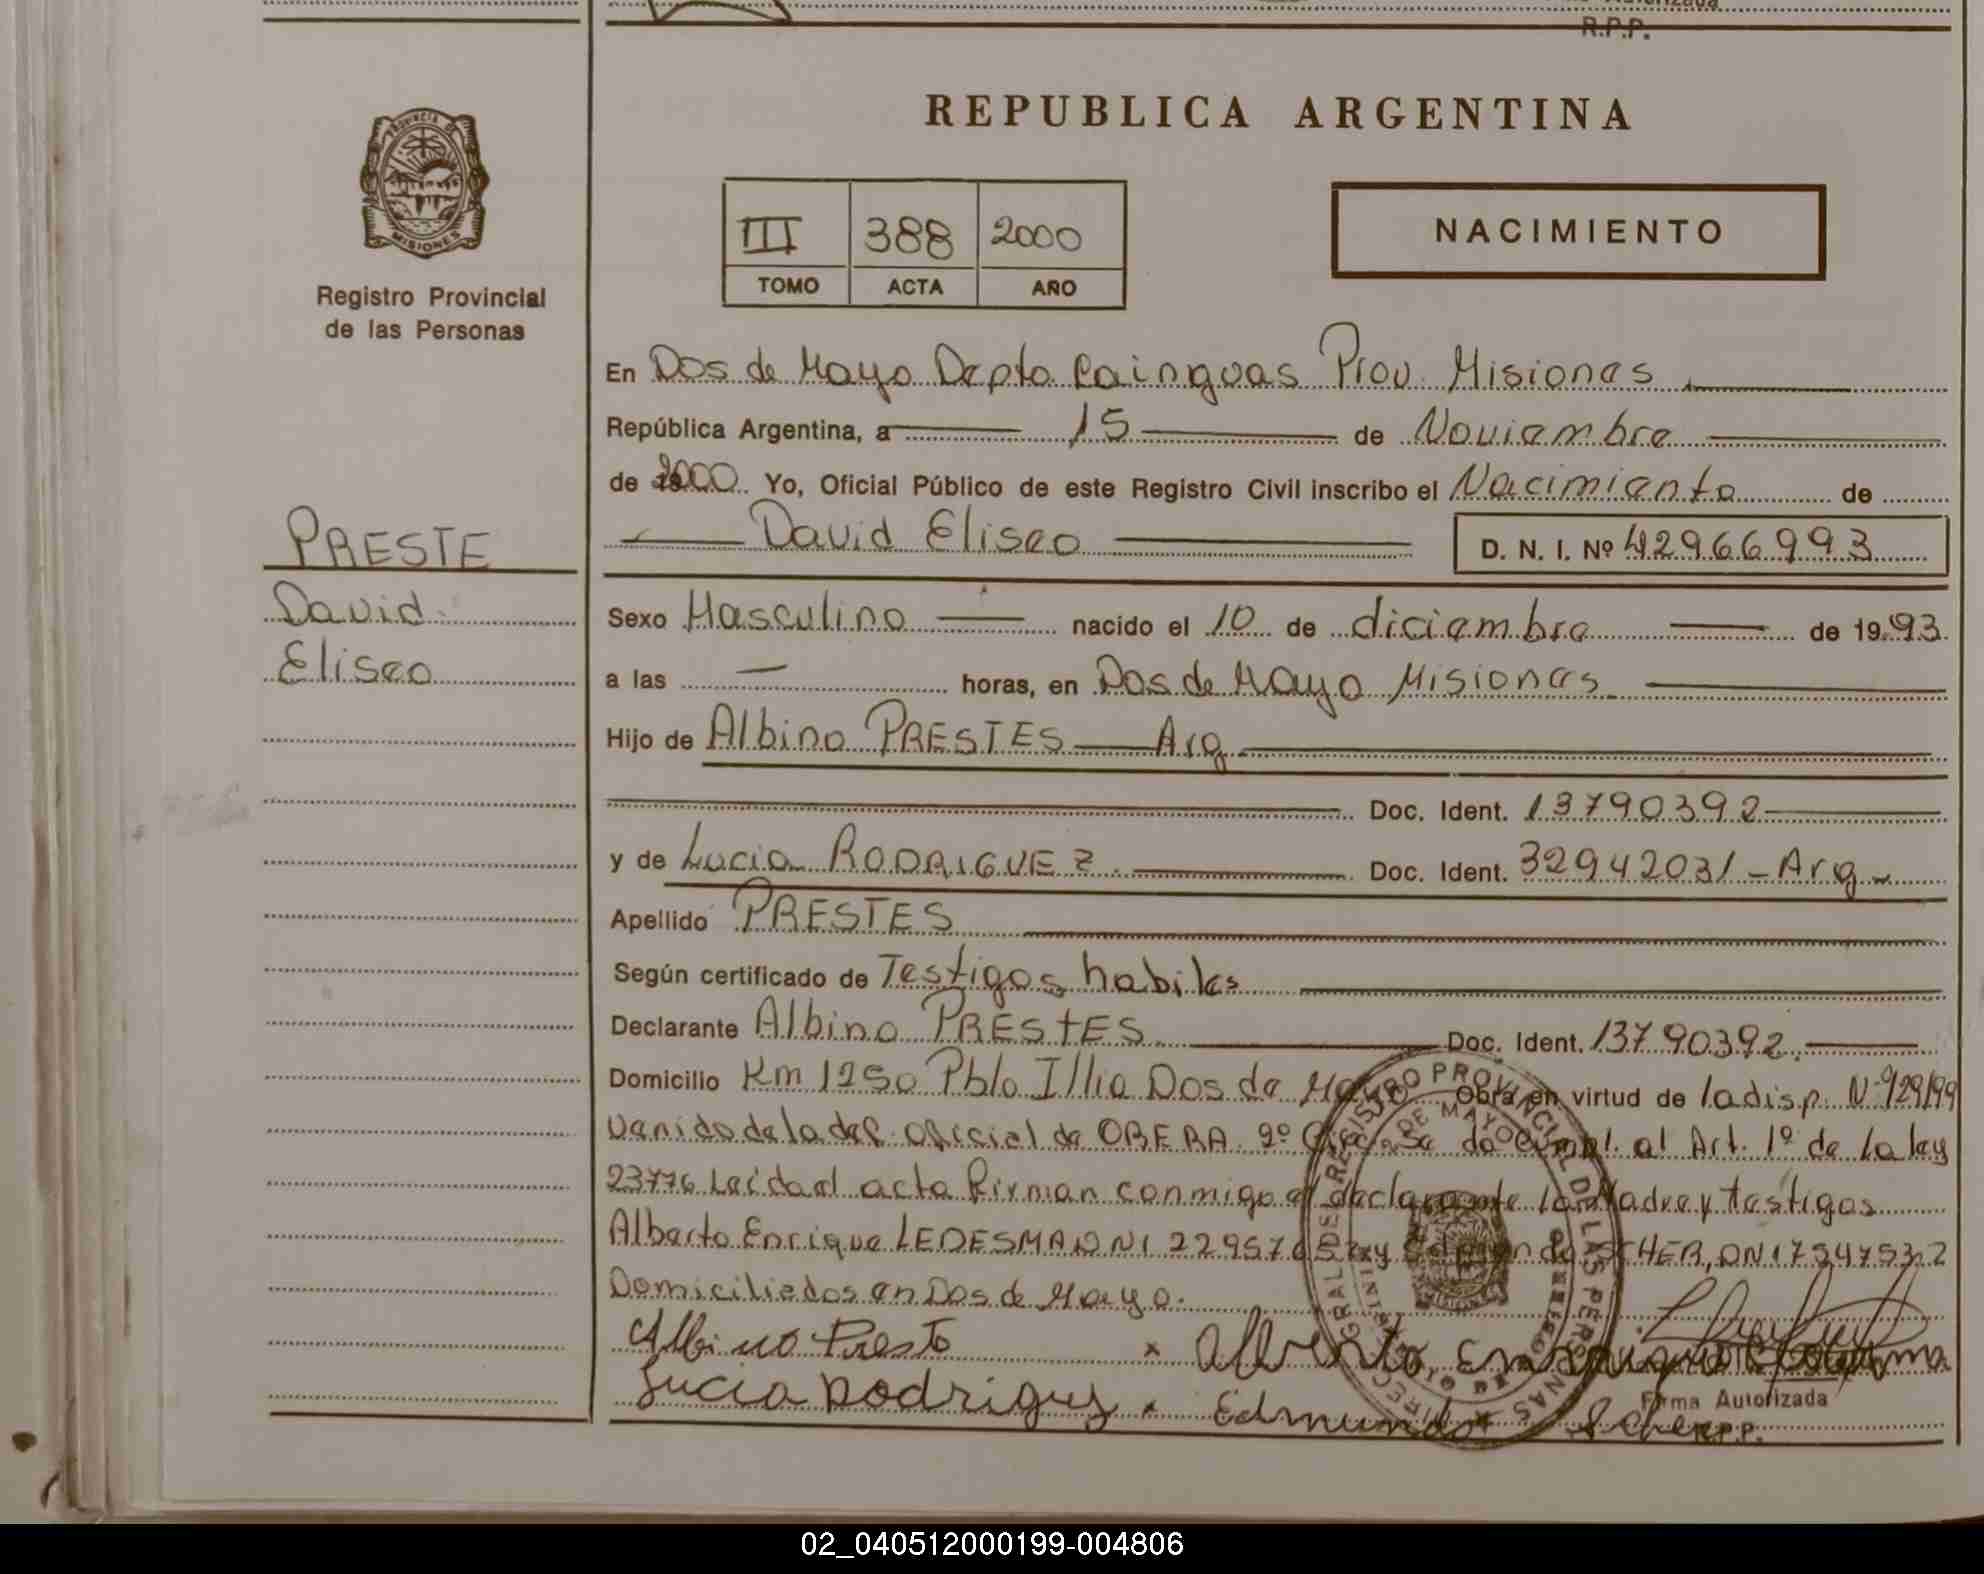 Autorizada
R.P.P.
REPUBLICA ARGENTINA
PROVINCIA DE
MISIONES
Registro Provincial
de las Personas
III 388 2000
TOMO ACTA AÑO
NACIMIENTO
En Dos de Mayo Depto Cainguas Prov. Misiones
República Argentina, a 15 de Noviembre
de 2000 Yo, Oficial Público de este Registro Civil inscribo el Nacimiento de
David Eliseo D. N. I. Nº 42966993
PRESTE
David
Eliseo
Sexo Masculino nacido el 10 de diciembre de 1993
a las — horas, en Dos de Mayo Misiones
Hijo de Albino PRESTES Arg
Doc. Ident. 13790392
y de Lucia RODRIGUEZ Doc. Ident. 32942031 - Arg -
Apellido PRESTES
Según certificado de Testigos habiles
Declarante Albino PRESTES Doc. Ident. 13790392
Domicilio Km 1250 Pblo Illia Dos de Mayo Obra en virtud de la disp. Nº 929/99
Venido de la del. oficial de OBERA 2º da cumpl. al Art. 1º de la ley
23776 Leida el acta firman conmigo el declarante la Madre y testigos
Alberto Enrique LEDESMA DNI y SCHER, DNI 17547532
Domiciliados en Dos de Mayo.
Albino Presto x Alberto Enrique
Lucia Rodriguez . Edmundo Scher
Firma Autorizada
R.P.P.
REGISTRO PROVINCIAL DE LAS PERSONAS
DE MAYO
02_040512000199-004806